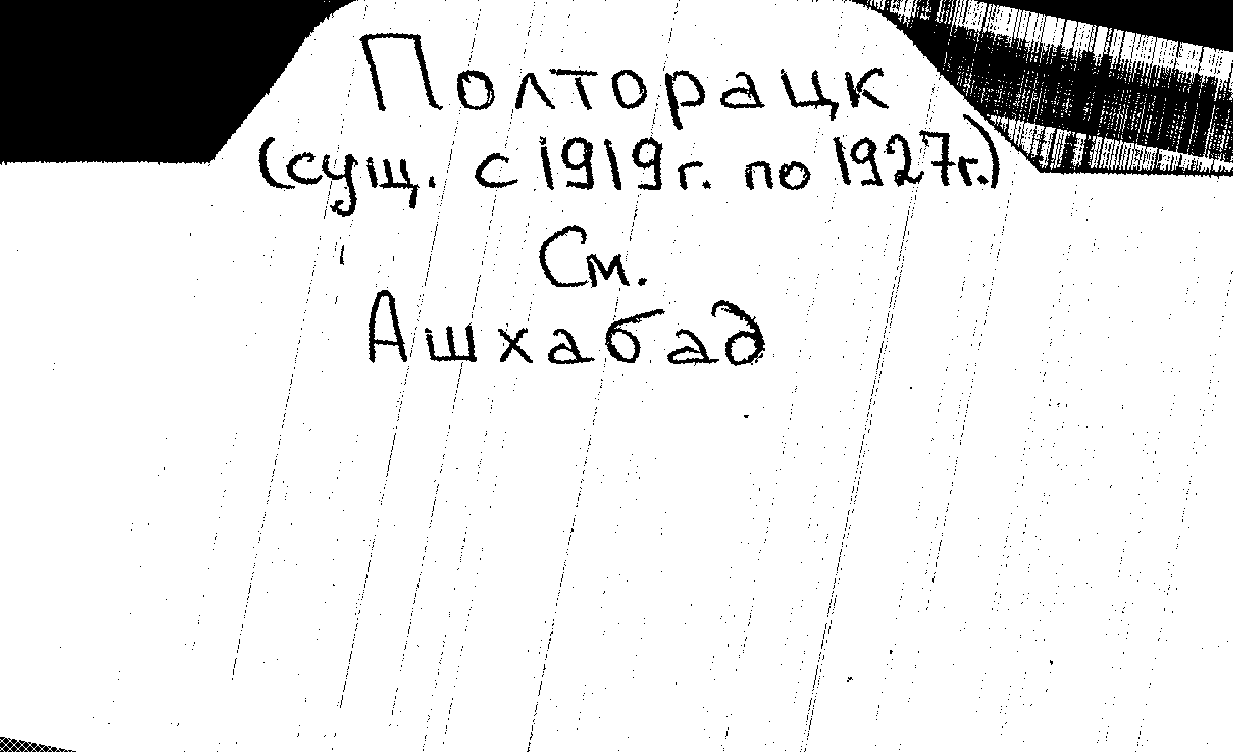 Полторацк
(сущ. с 1919г. по 1927г.)
См.
Ашхабад